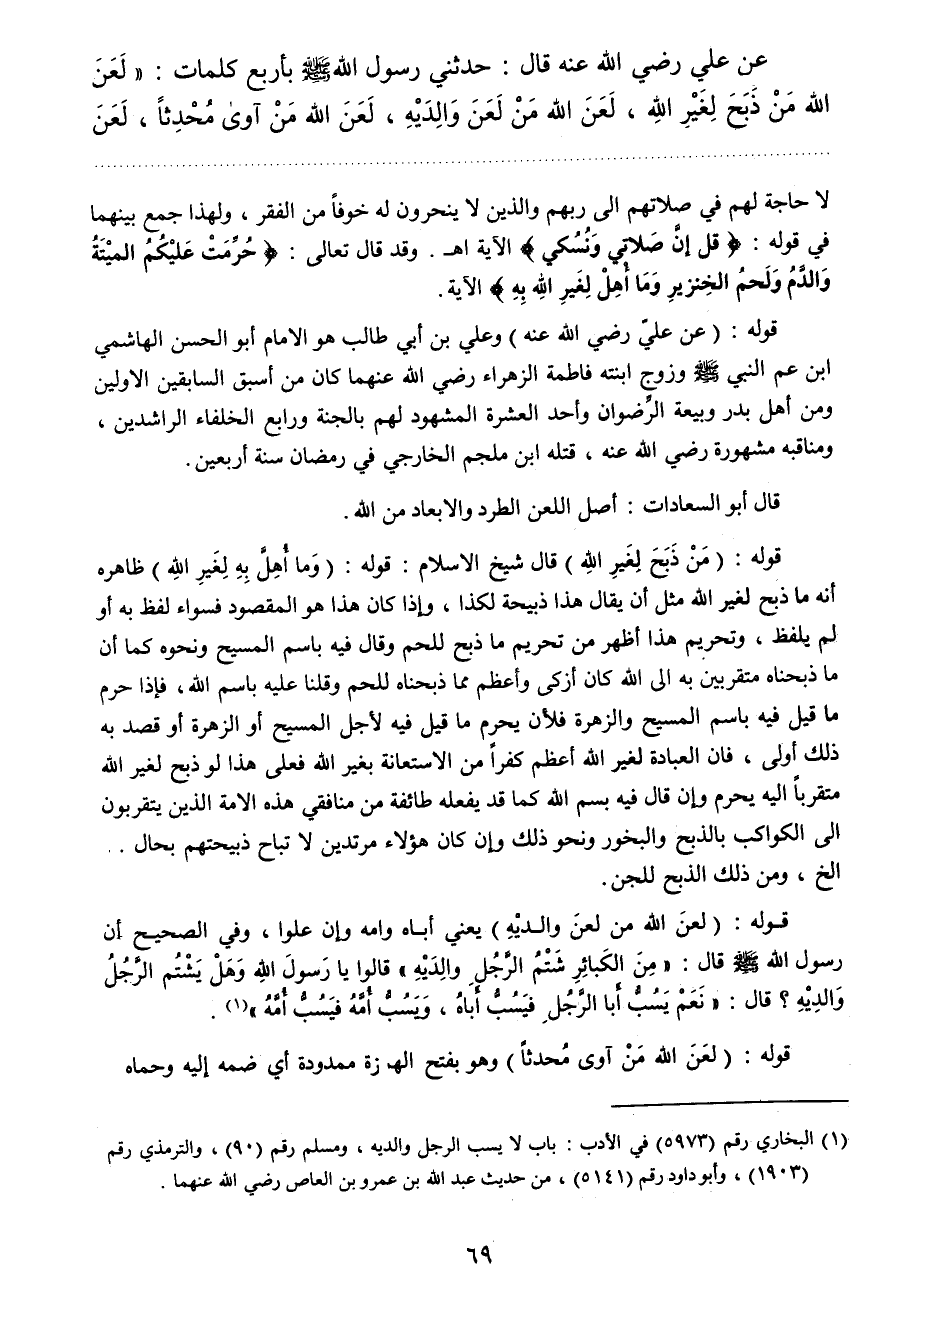 عن علي رضي الله عنه قال : حدثني رسول الله ﷺ بأربع كلمات : « لَعَنَ
الله مَنْ ذَبَحَ لِغَيْرِ اللهِ ، لَعَنَ الله مَنْ لَعَنَ وَالِدَيْهِ ، لَعَنَ الله مَنْ آوىٰ مُحْدِثاً ، لَعَنَ
لا حاجة لهم في صلاتهم الى ربهم والذين لا ينحرون له خوفاً من الفقر ، ولهذا جمع بينهما
في قوله : ﴿ قل إنَّ صَلاتي وَنُسُكي ﴾ الآية اهـ . وقد قال تعالى : ﴿ حُرِّمَتْ عَلَيْكُمُ الميْتَةُ
وَالدَّمُ وَلَحمُ الخِنزيرِ وَمَا أُهِلْ لِغَيرِ اللهِ بِهِ ﴾ الآية .
قوله : ( عن عليّ رضي الله عنه ) وعلي بن أبي طالب هو الامام أبو الحسن الهاشمي
ابن عم النبي ﷺ وزوج ابنته فاطمة الزهراء رضي الله عنهما كان من أسبق السابقين الاولين
ومن أهل بدر وبيعة الرِّضوان وأحد العشرة المشهود لهم بالجنة ورابع الخلفاء الراشدين ،
ومناقبه مشهورة رضي الله عنه ، قتله ابن ملجم الخارجي في رمضان سنة أربعين .
قال أبو السعادات : أصل اللعن الطرد والابعاد من الله .
قوله : ( مَنْ ذَبَحَ لِغَيرِ اللهِ ) قال شيخ الاسلام : قوله : ( وَما أُهِلَّ بِهِ لِغَيرِ اللهِ ) ظاهره
أنه ما ذبح لغير الله مثل أن يقال هذا ذبيحة لكذا ، وإذا كان هذا هو المقصود فسواء لفظ به أو
لم يلفظ ، وتحريم هذا أظهر من تحريم ما ذبح للحم وقال فيه باسم المسيح ونحوه كما أن
ما ذبحناه متقربين به الى الله كان أزكى وأعظم مما ذبحناه للحم وقلنا عليه باسم الله ، فإذا حرم
ما قيل فيه باسم المسيح والزهرة فلأن يحرم ما قيل فيه لأجل المسيح أو الزهرة أو قصد به
ذلك أولى ، فان العبادة لغير الله أعظم كفراً من الاستعانة بغير الله فعلى هذا لو ذبح لغير الله
متقرباً اليه يحرم وإن قال فيه بسم الله كما قد يفعله طائفة من منافقي هذه الامة الذين يتقربون
الى الكواكب بالذبح والبخور ونحو ذلك وإن كان هؤلاء مرتدين لا تباح ذبيحتهم بحال . .
الخ ، ومن ذلك الذبح للجن .
قوله : ( لعنَ الله من لعنَ والديْهِ ) يعني أباه وامه وإن علوا ، وفي الصحيح أن
رسول الله ﷺ قال : « مِنَ الكَبائِرِ شَتْمُ الرَّجُلِ والِدَيْهِ » قالوا يا رَسولَ اللهِ وَهَلْ يَشْتُم الرَّجُلُ
وَالِدِيْهِ ؟ قال : « نَعَمْ يَسُبُّ أَبا الرَّجُلِ فَيَسُبُّ أَباهُ ، وَيَسُبُّ أُمَّهُ فَيَسُبُّ أُمَّهُ »(١) .
قوله : ( لعَنَ الله مَنْ آوى مُحدثاً ) وهو بفتح الهمزة ممدودة أي ضمه إليه وحماه
(١) البخاري رقم (٥٩٧٣) في الأدب : باب لا يسب الرجل والديه ، ومسلم رقم (٩٠) ، والترمذي رقم
(١٩٠٣) ، وأبو داود رقم (٥١٤١) ، من حديث عبد الله بن عمرو بن العاص رضي الله عنهما .
٦٩